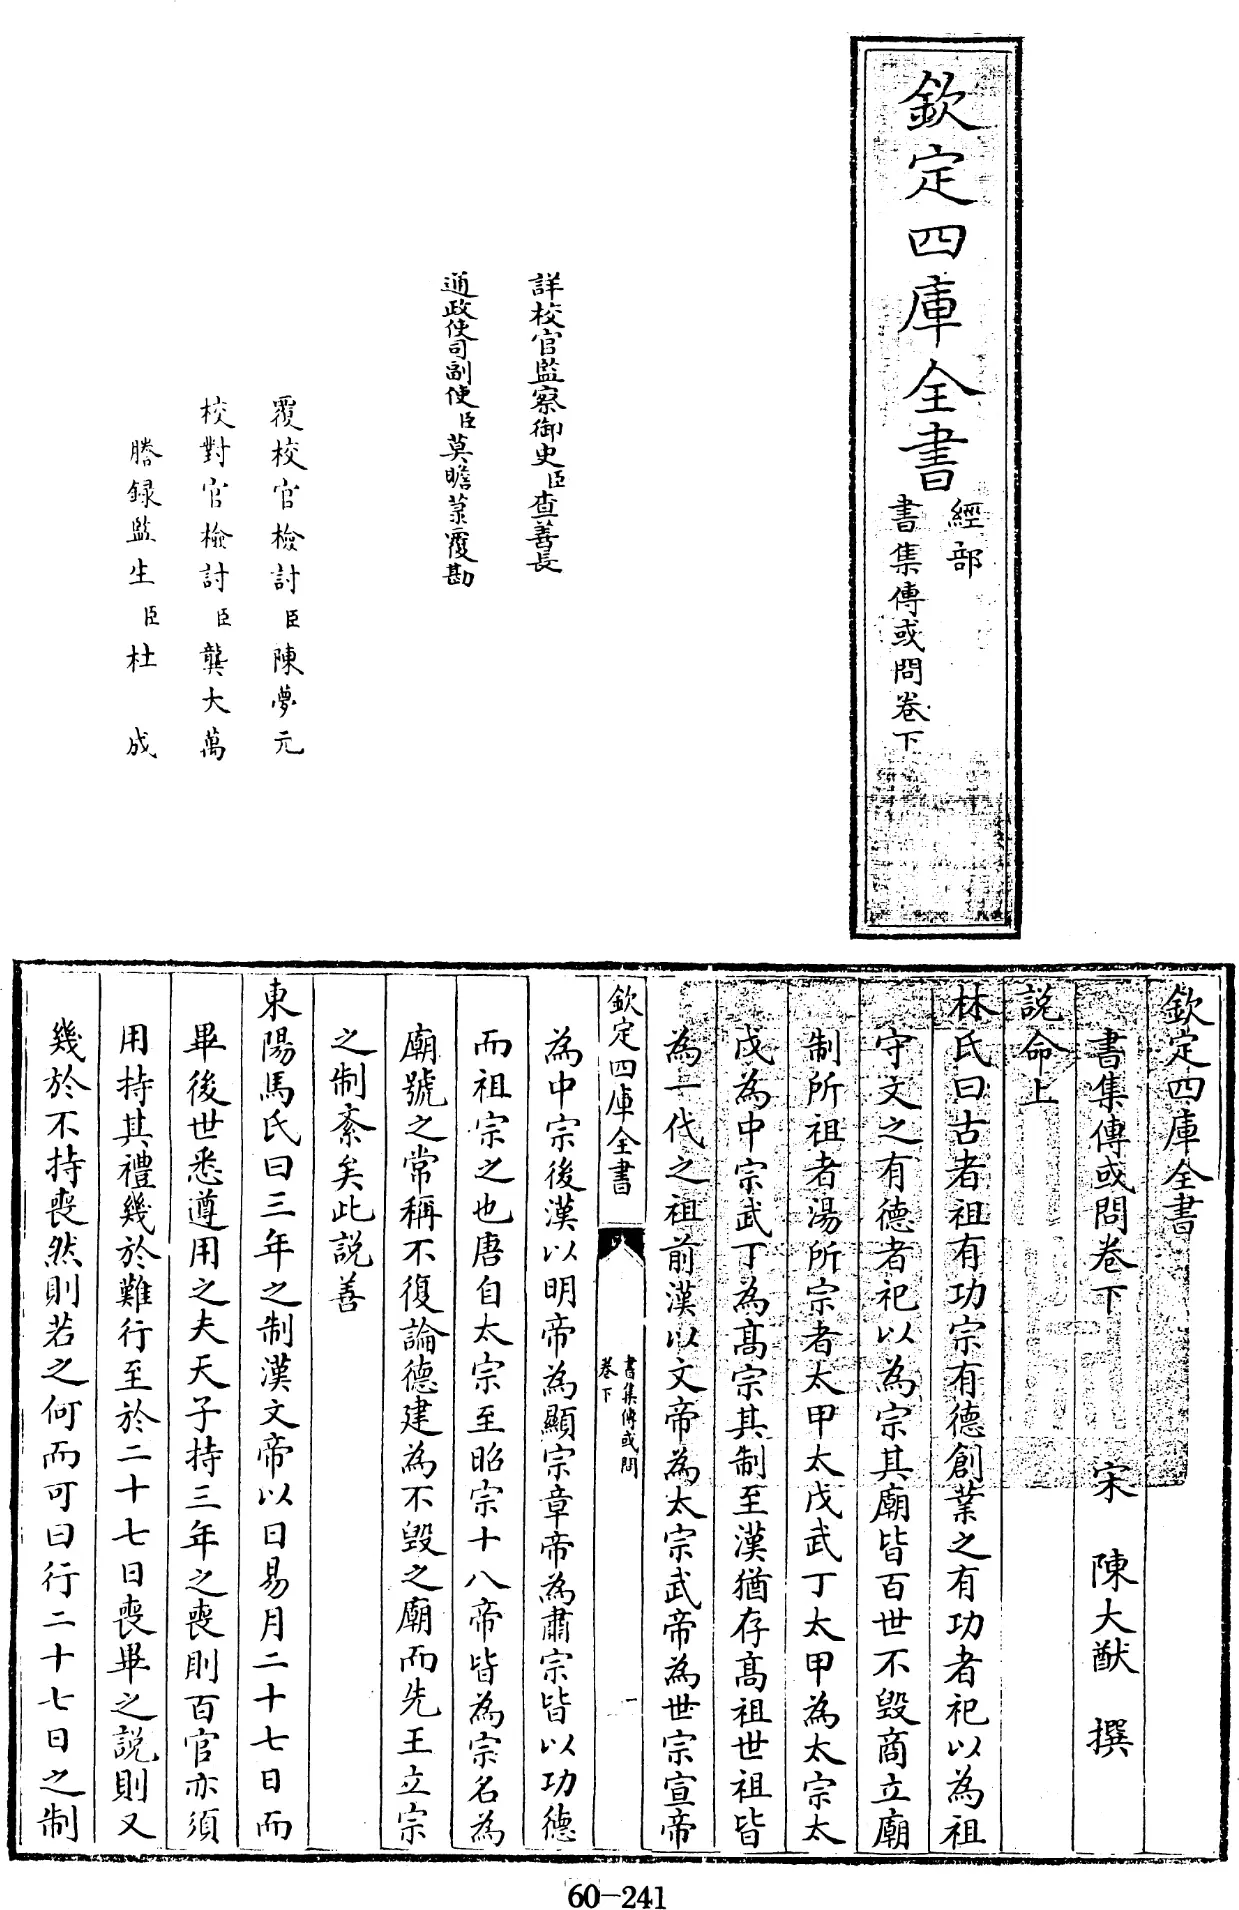 欽定四庫全書
經部
書集傳或問卷下
詳校官監察御史臣查善長
通政使司副使臣莫瞻菉覆勘
覆校官檢討臣陳夢元
校對官檢討臣龔大萬
謄録監生臣杜成
欽定四庫全書
書集傳或問卷下
宋 陳大猷 撰
説命上
林氏曰古者祖有功宗有德創業之有功者祀以為祖
守文之有德者祀以為宗其廟皆百世不毀商立廟
制所祖者湯所宗者太甲太戊武丁太甲為太宗太
戊為中宗武丁為髙宗其制至漢猶存髙祖世祖皆
為一代之祖前漢以文帝為太宗武帝為世宗宣帝
欽定四庫全書
書集傳或問
卷下
一
為中宗後漢以明帝為顯宗章帝為肅宗皆以功德
而祖宗之也唐自太宗至昭宗十八帝皆為宗名為
廟號之常稱不復論德建為不毀之廟而先王立宗
之制紊矣此説善
東陽馬氏曰三年之制漢文帝以日易月二十七日而
畢後世悉遵用之夫天子持三年之喪則百官亦須
用持其禮幾於難行至於二十七日喪畢之説則又
幾於不持喪然則若之何而可曰行二十七日之制
60-241